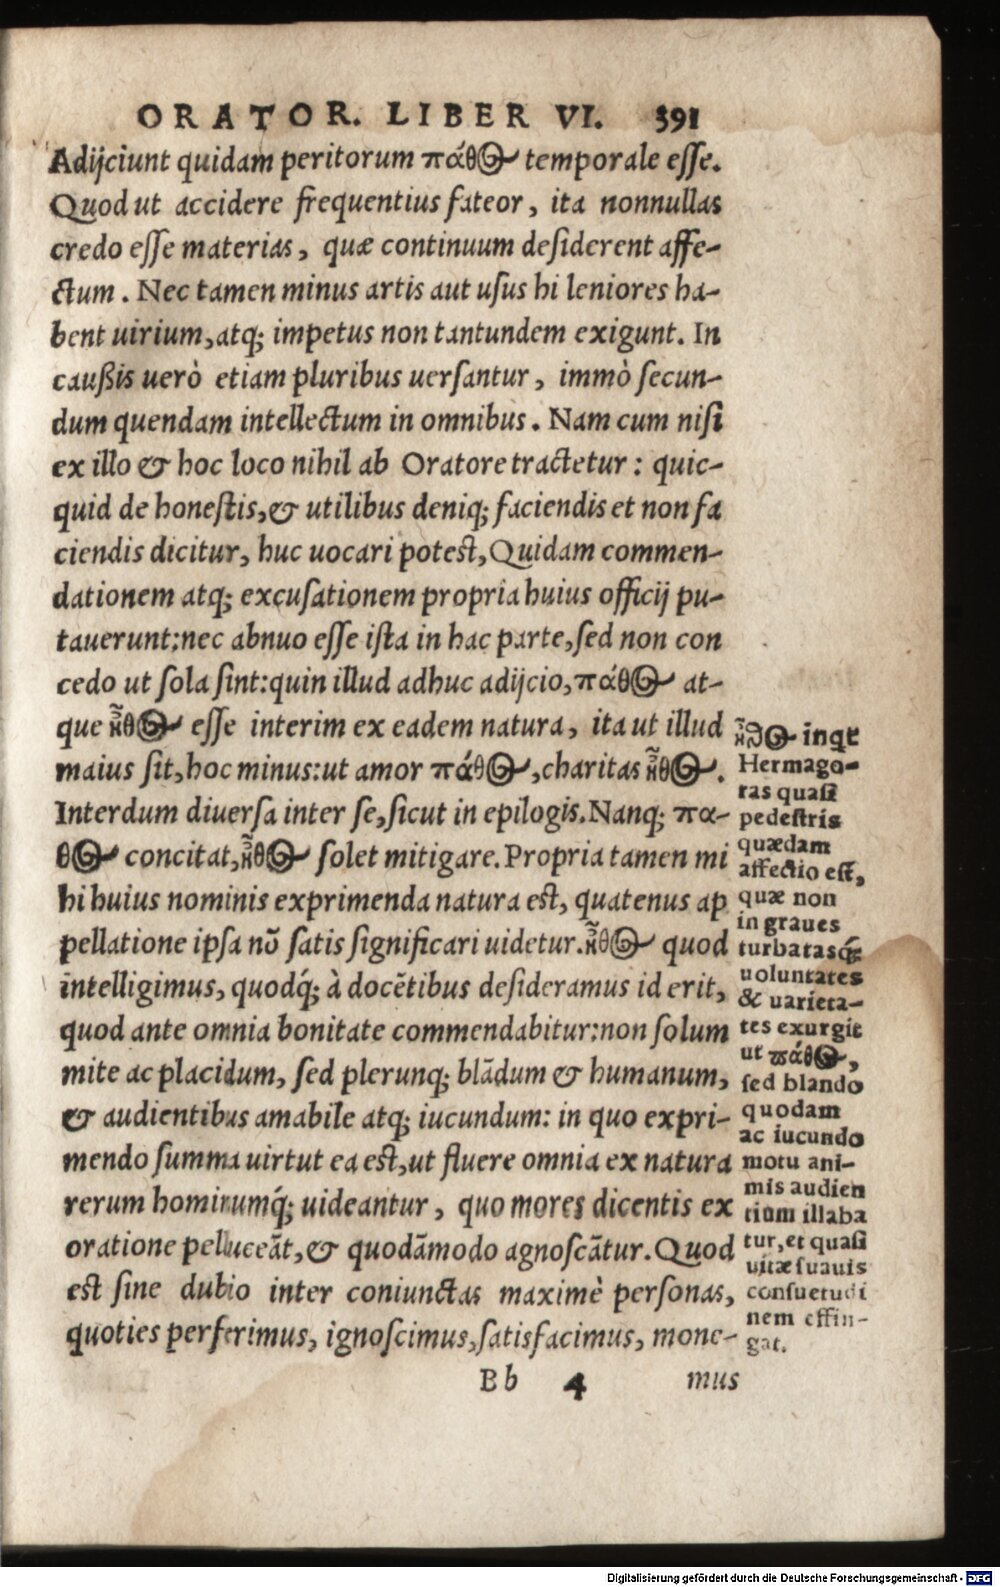 ORATOR. LIBER VI. 391
Adijciunt quidam peritorum πάθος temporale esse.
Quod ut accidere frequentius fateor, ita nonnullas
credo esse materias, quæ continuum desiderent affe-
ctum. Nec tamen minus artis aut usus hi leniores ha-
bent uirium, atq; impetus non tantundem exigunt. In
caußis uerò etiam pluribus uersantur, immò secun-
dum quendam intellectum in omnibus. Nam cum nisi
ex illo & hoc loco nihil ab Oratore tractetur: quic-
quid de honestis, & utilibus deniq; faciendis et non fa
ciendis dicitur, huc uocari potest, Quidam commen-
dationem atq; excusationem propria huius officij pu-
tauerunt: nec abnuo esse ista in hac parte, sed non con
cedo ut sola sint: quin illud adhuc adijcio, πάθος at-
que ἦθος esse interim ex eadem natura, ita ut illud
maius sit, hoc minus: ut amor πάθος, charitas ἦθος.
Interdum diuersa inter se, sicut in epilogis. Nanq; πα-
θος concitat, ἦθος solet mitigare. Propria tamen mi
hi huius nominis exprimenda natura est, quatenus ap
pellatione ipsa nō satis significari uidetur. ἦθος quod
intelligimus, quodq́; à docētibus desideramus id erit,
quod ante omnia bonitate commendabitur: non solum
mite ac placidum, sed plerunq; blādum & humanum,
& audientibus amabile atq; iucundum: in quo expri-
mendo summa uirtut ea est, ut fluere omnia ex natura
rerum hominumq́; uideantur, quo mores dicentis ex
oratione pelluceāt, & quodāmodo agnoscātur. Quod
est sine dubio inter coniunctas maximè personas,
quoties perferimus, ignoscimus, satisfacimus, mone-
Bb 4 mus
ἦθος inqt
Hermago-
ras quasi
pedestris
quædam
affectio est,
quæ non
in graues
turbatasq́;
uoluntates
& uarieta-
tes exurgit
ut πάθος,
sed blando
quodam
ac iucundo
motu ani-
mis audien
tium illaba
tur, et quasi
uitæ suauis
consuetudi
nem effin-
gat.
Digitalisierung gefördert durch die Deutsche Forschungsgemeinschaft - DFG